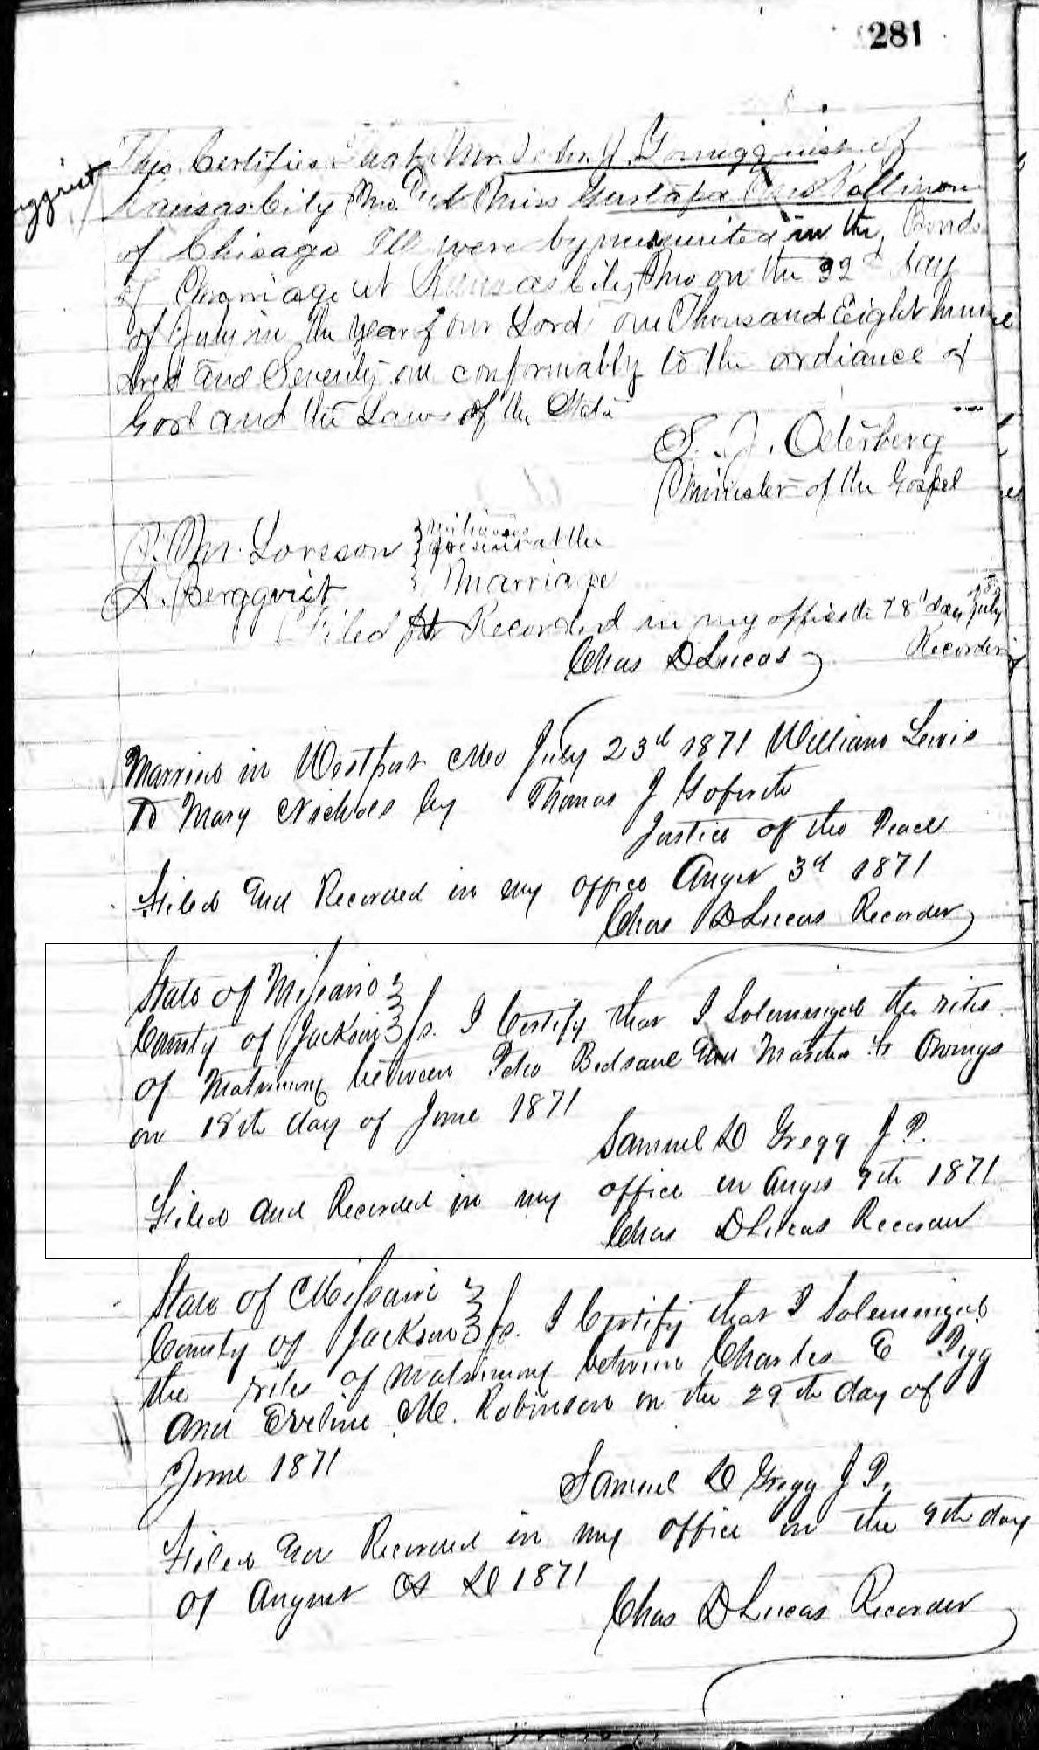 281
This Certifies that Mr. John J.
Kansas City Mo and Miss
of Chicago Ill were by me united in the Bonds
of Marriage at Kansas City Mo on the 22d day
of July in the year of our Lord one Thousand Eight hun
dred and Seventy one conformably to the ordiance of
God and the Laws of the State
S. J. Osterberg
Minister of the Gospel
P. M. Lorsson } witnesses
present at the
A. Bergqvist } Marriage
Filed for Recorded in my office the 28th day July
Chas D Lucas Recorder
Married in Westport Mo July 23d 1871 William Lewis
To Mary Nichols by Thomas J Goforth
Justice of the Peace
Filed and Recorded in my office August 3d 1871
Chas D Lucas Recorder
State of Missouri }
County of Jackson } ss. I Certify that I Solemnized the rites
of Matrimony between Peter Bedsaul and Martha H Owings
on 18th day of June 1871
Samuel D Gregg J P.
Filed and Recorded in my office on Augus 9th 1871
Chas D Lucas Recorder
State of Missouri }
County of Jackson } ss. I Certify that I Solemnized
the rites of matrimony between Charles E Pigg
and Eveline M. Robinson on the 29th day of
June 1871
Samuel D Gregg J P.
Filed and Recorded in my office on the 9th day
of August A D 1871
Chas D Lucas Recorder